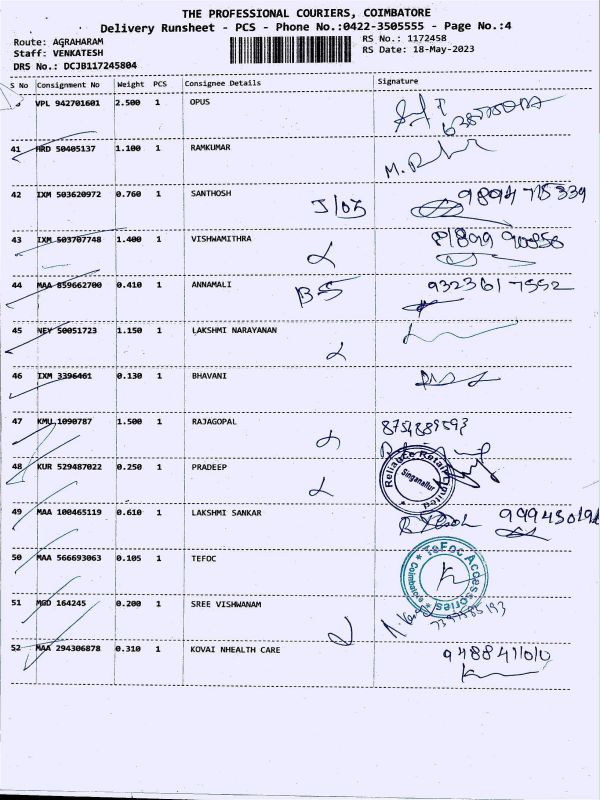 THE PROFESSIONAL COURIERS, COIMBATORE
Delivery Runsheet - PCS - Phone No.:0422-3505555 - Page No.:4
Route: AGRAHARAM
RS No.: 1172458
Staff: VENKATESH
RS Date: 18-May-2023
DRS No.: DCJB117245804
S No Consignment No Weight PCS Consignee Details Signature
VPL 942701601 2.500 1 OPUS
41 HRD 50405137 1.100 1 RAMKUMAR
42 IXM 503620972 0.760 1 SANTHOSH 9894775339
43 IXM 503707748 1.400 1 VISHWAMITHRA
44 MAA 859662700 0.410 1 ANNAMALI B-5 9323617552
45 NEY 50051723 1.150 1 LAKSHMI NARAYANAN
46 IXM 3396461 0.130 1 BHAVANI
47 KMU 1090787 1.500 1 RAJAGOPAL 8754889593
48 KUR 529487022 0.250 1 PRADEEP Reliance Retail Limited Singanallur
49 MAA 100465119 0.610 1 LAKSHMI SANKAR
50 MAA 566693063 0.105 1 TEFOC TeFoc Accessories Coimbatore
51 MGD 164245 0.200 1 SREE VISHWANAM
52 MAA 294306878 0.310 1 KOVAI NHEALTH CARE 9488411010